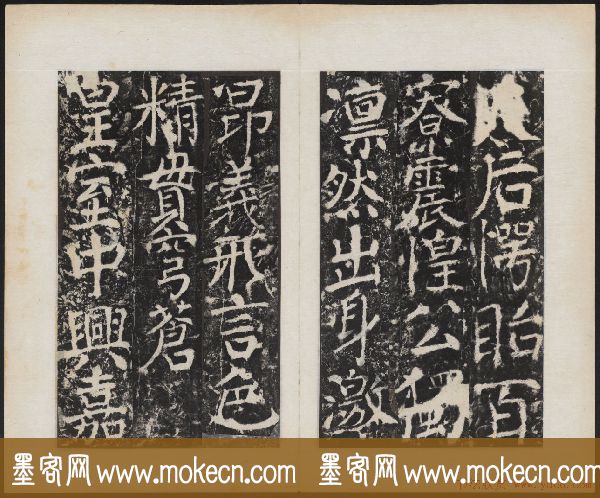 后愕眙百
寮震惶公獨
凛然出身激
昂義形言色
精貫穹蒼
皇室中興嘉
墨客网 www.mokecn.com 墨客网 www.mokecn.com